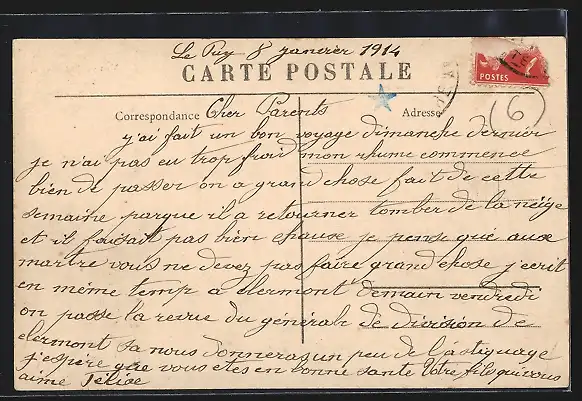 Le Puy 8 janvier 1914
CARTE POSTALE
POSTES
6
Correspondance Cher Parents Adresse
y'ai fait un bon voyage dimanche dernier
je n'ai pas eu trop froid mon rhume commence
bien de passer on a grand chose fait de cette
semaine parque il a retourner tomber de la neige
et il faisait pas bien chause je pense que aux
martre vous ne devez pas faire grand chose j'ecrit
en même temp a clermont demain vendredi
on passe la revue du général de division de
clermont sa nous donneras un peu de l'astiquage
j'espère que vous etes en bonne santé Votre fils qui vous
aime